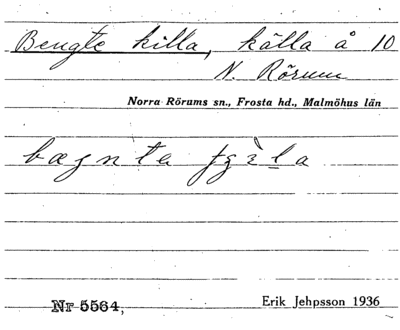 Bengte killa, källa å 10
N. Rörum
Norra Rörums sn., Frosta hd., Malmöhus län
Nr 5564,
Erik Jehpsson 1936